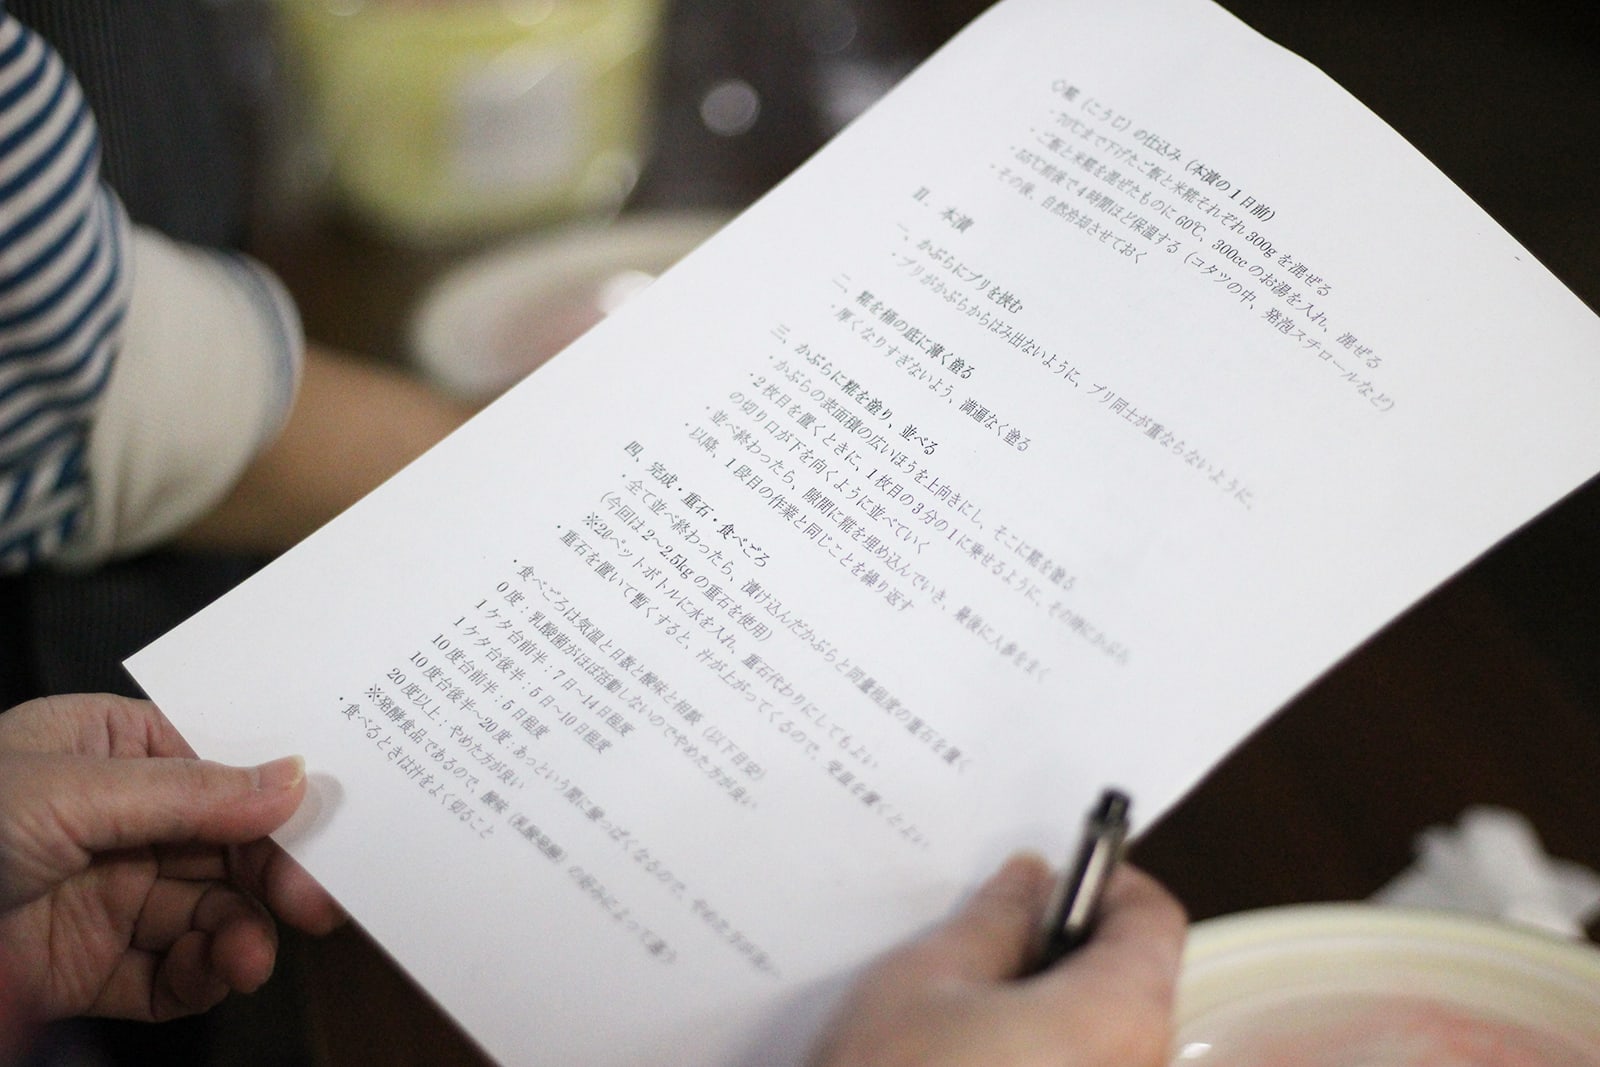 ○糀（こうじ）の仕込み（本漬の1日前）
・70℃まで下げたご飯と米糀それぞれ300gを混ぜる
・ご飯と米糀を混ぜたものに60℃、300ccのお湯を入れ、混ぜる
・55℃前後で4時間ほど保温する（コタツの中、発泡スチロールなど）
・その後、自然冷却させておく
Ⅱ、本漬
一、かぶらにブリを挟む
・ブリがかぶらからはみ出ないように、ブリ同士が重ならないように、
二、糀を桶の底に薄く塗る
・厚くなりすぎないよう、満遍なく塗る
三、かぶらに糀を塗り、並べる
・かぶらの表面積の広いほうを上向きにし、そこに糀を塗る
・2枚目を置くときに、1枚目の3分の1に乗せるように、その際にかぶら
の切り口が下を向くように並べていく
・並べ終わったら、隙間に糀を埋め込んでいき、最後に人参をまく
・以降、1段目の作業と同じことを繰り返す
四、完成・重石・食べごろ
・全て並べ終わったら、漬け込んだかぶらと同量程度の重石を置く
(今回は2～2.5kgの重石を使用)
※2ℓペットボトルに水を入れ、重石代わりにしてもよい
・重石を置いて暫くすると、汁が上がってくるので、受皿を置くとよい
・食べごろは気温と日数と酸味と相談（以下目安）
0度：乳酸菌がほぼ活動しないのでやめた方が良い
1ケタ台前半：7日～14日程度
1ケタ台後半：5日～10日程度
10度台前半：5日程度
10度台後半～20度：あっという間に酸っぱくなるので、やめた方が良い
20度以上：やめた方が良い
※発酵食品であるので、酸味（乳酸発酵）の好みによって違う
・食べるときは汁をよく切ること